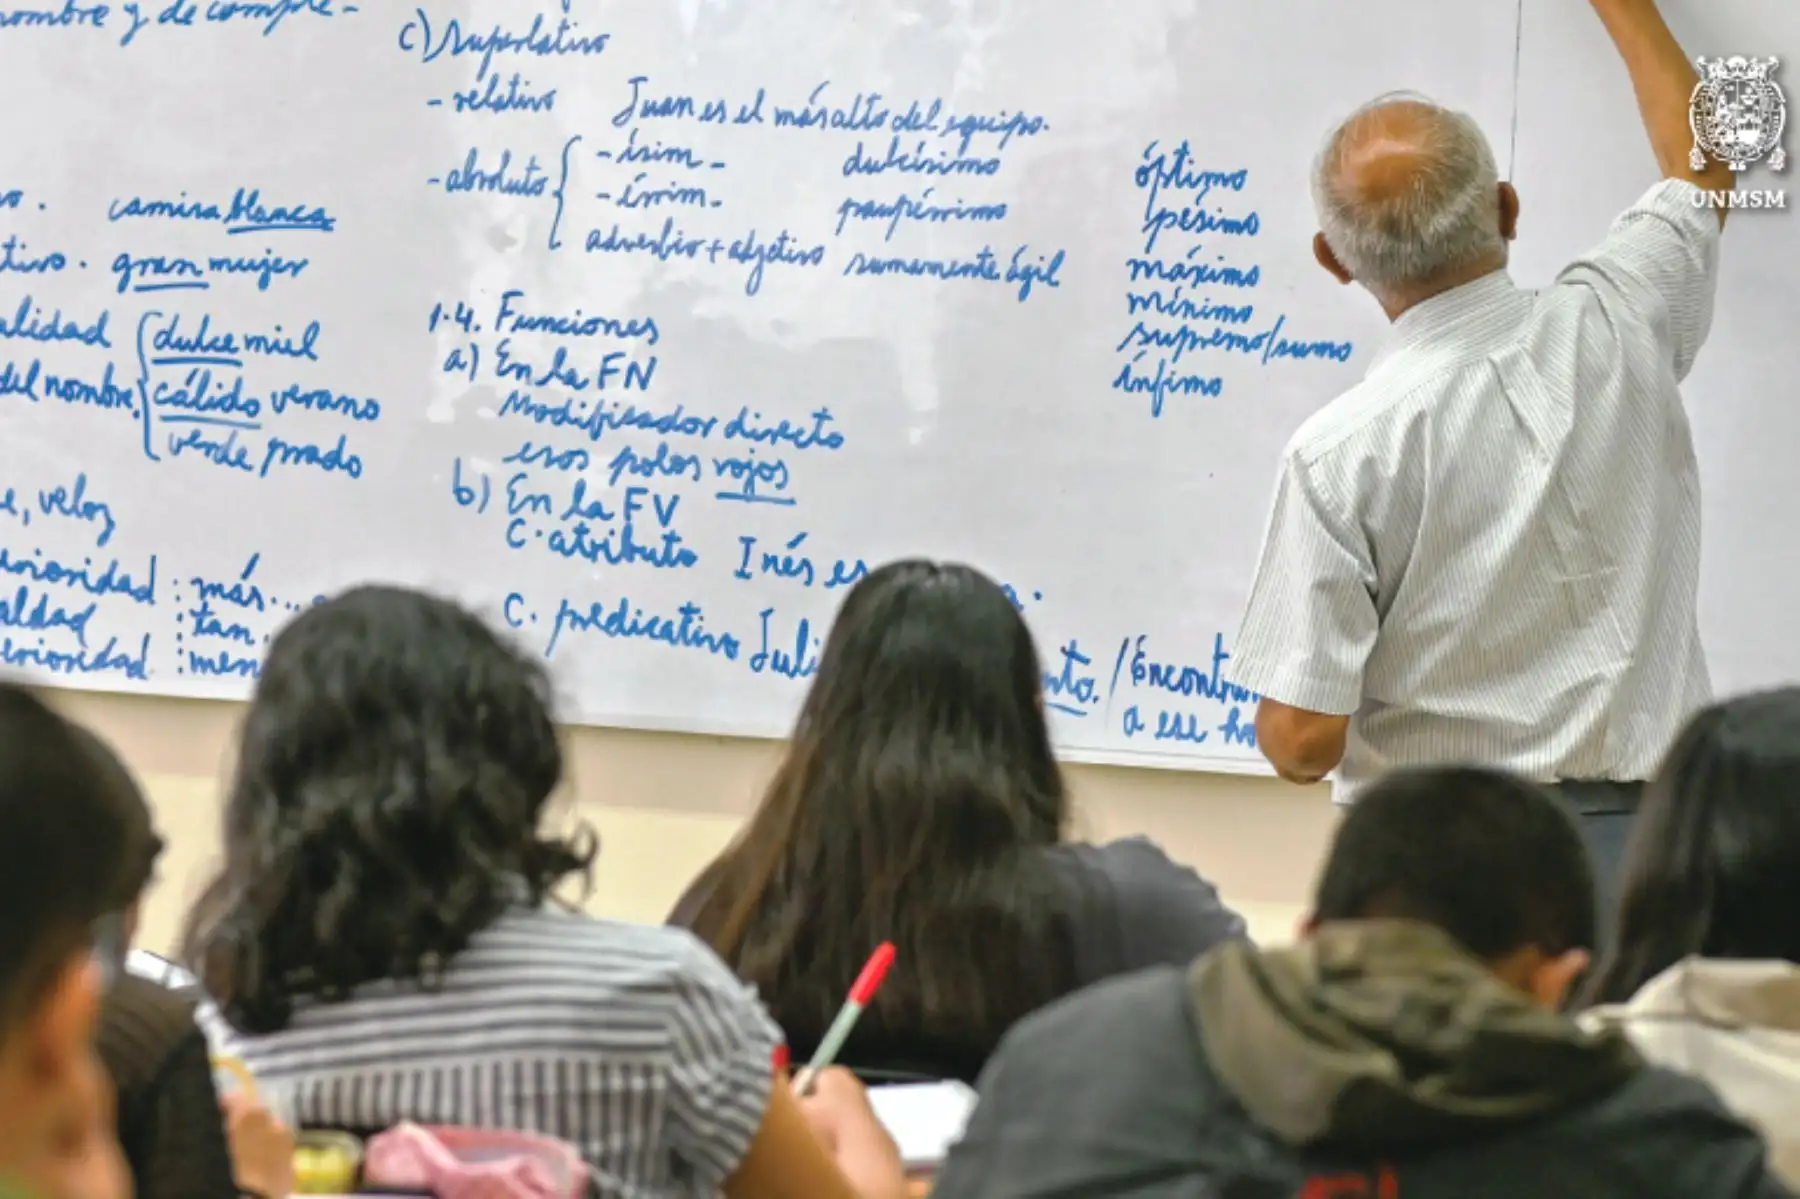 nombre y de comple-
camisa blanca
gran mujer
dulce miel
del nombre. cálido verano
verde prado
e, veloz
: más...
: tan
: men
c) Superlativo
- relativo Juan es el más alto del equipo.
- absoluto -ísim- dulcísimo
-érrim- paupérrimo
adverbio + adjetivo sumamente ágil
óptimo
pésimo
máximo
mínimo
supremo/sumo
ínfimo
1.4. Funciones
a) En la FN
Modificador directo
esos polos rojos
b) En la FV
C. atributo Inés es
C. predicativo Juli
/Encontra
a ese ho
UNMSM